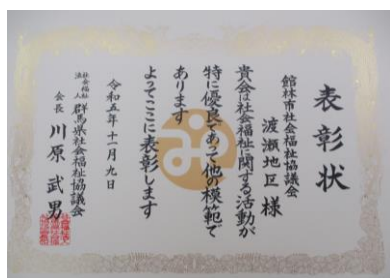 表彰状
館林市社会福祉協議会
渡瀬地区 様
貴会は社会福祉に関する活動が
特に優良であって他の模範で
あります
よってここに表彰します
令和五年十一月九日
社会福祉法人 群馬県社会福祉協議会
会長 川原武男